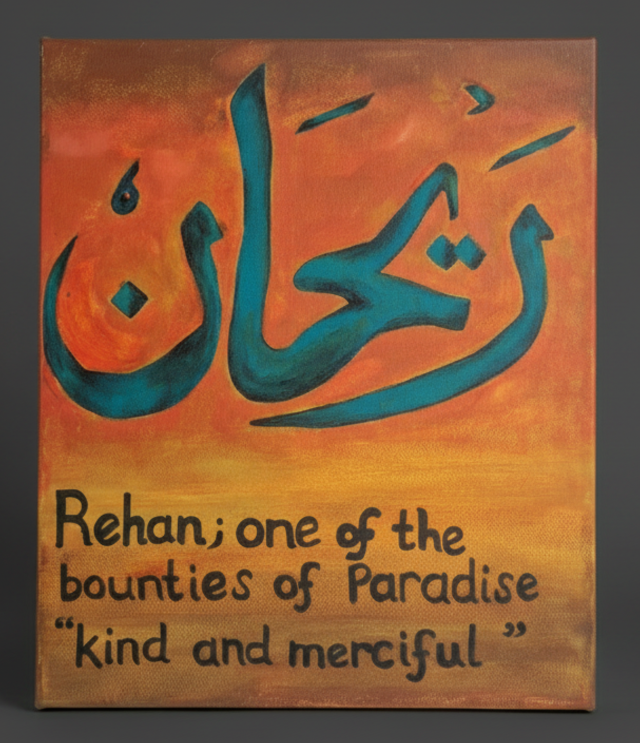 ريحان
Rehan; one of the
bounties of Paradise
"kind and merciful"